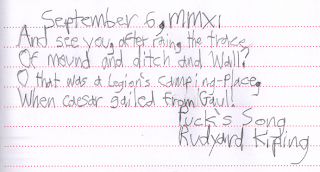 September 6, MMXI
And see you, after rning the trace,
Of mound and ditch and Wall?
O that was a Legion's Camping-Place,
When caesar gailed from Gaul!
Puck's Song
Rudyard Kipling